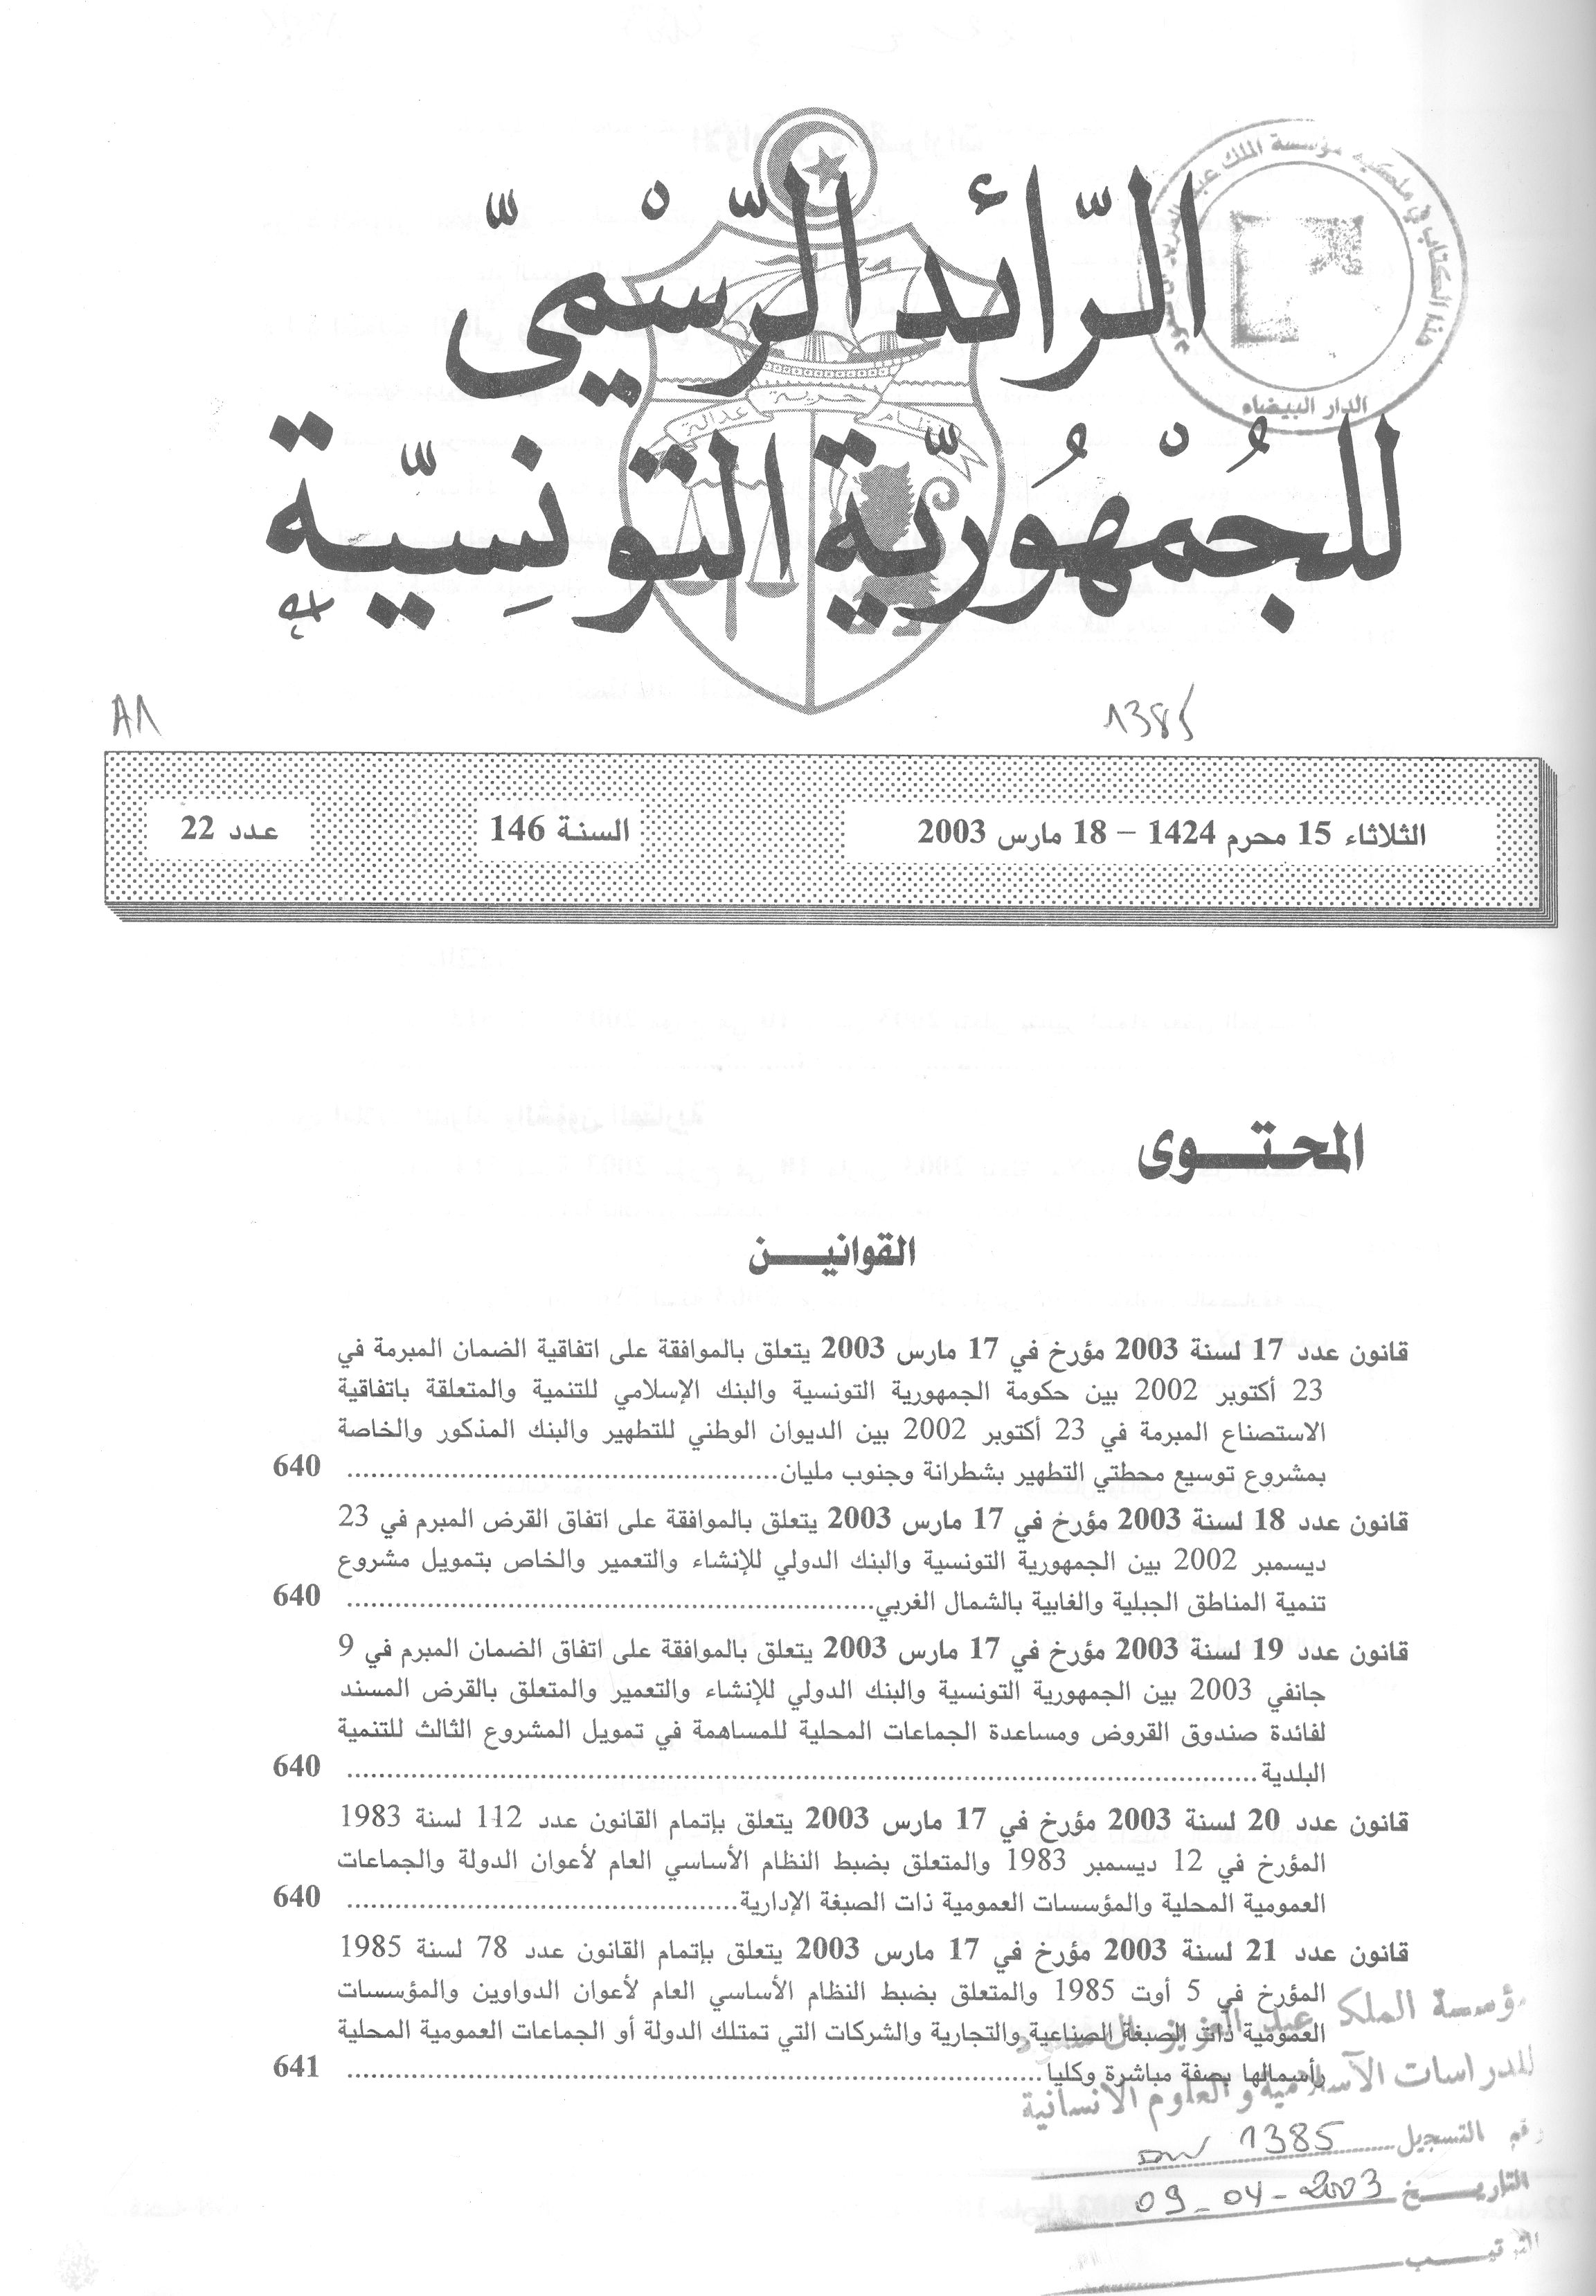 الرّائد الرّسْميّ
للجُمْهُوريّة التّونِسيّة
نظام حرية عدالة
هذا الكتاب في ملكية مؤسسة الملك عبد العزيز
الدار البيضاء
A1
1385
الثلاثاء 15 محرم 1424 – 18 مارس 2003
السنة 146
عدد 22
المحتوى
القوانين
قانون عدد 17 لسنة 2003 مؤرخ في 17 مارس 2003 يتعلق بالموافقة على اتفاقية الضمان المبرمة في
23 أكتوبر 2002 بين حكومة الجمهورية التونسية والبنك الإسلامي للتنمية والمتعلقة باتفاقية
الاستصناع المبرمة في 23 أكتوبر 2002 بين الديوان الوطني للتطهير والبنك المذكور والخاصة
بمشروع توسيع محطتي التطهير بشطرانة وجنوب مليان........................................ 640
قانون عدد 18 لسنة 2003 مؤرخ في 17 مارس 2003 يتعلق بالموافقة على اتفاق القرض المبرم في 23
ديسمبر 2002 بين الجمهورية التونسية والبنك الدولي للإنشاء والتعمير والخاص بتمويل مشروع
تنمية المناطق الجبلية والغابية بالشمال الغربي........................................ 640
قانون عدد 19 لسنة 2003 مؤرخ في 17 مارس 2003 يتعلق بالموافقة على اتفاق الضمان المبرم في 9
جانفي 2003 بين الجمهورية التونسية والبنك الدولي للإنشاء والتعمير والمتعلق بالقرض المسند
لفائدة صندوق القروض ومساعدة الجماعات المحلية للمساهمة في تمويل المشروع الثالث للتنمية
البلدية........................................ 640
قانون عدد 20 لسنة 2003 مؤرخ في 17 مارس 2003 يتعلق بإتمام القانون عدد 112 لسنة 1983
المؤرخ في 12 ديسمبر 1983 والمتعلق بضبط النظام الأساسي العام لأعوان الدولة والجماعات
العمومية المحلية والمؤسسات العمومية ذات الصبغة الإدارية........................................ 640
قانون عدد 21 لسنة 2003 مؤرخ في 17 مارس 2003 يتعلق بإتمام القانون عدد 78 لسنة 1985
المؤرخ في 5 أوت 1985 والمتعلق بضبط النظام الأساسي العام لأعوان الدواوين والمؤسسات
العمومية ذات الصبغة الصناعية والتجارية والشركات التي تمتلك الدولة أو الجماعات العمومية المحلية
رأسمالها بصفة مباشرة وكليا........................................ 641
مؤسسة الملك عبد العزيز آل سعود
للدراسات الآسلامية و العلوم الانسانية
رقم التسجيل 1385
التاريخ 09-04-2003
الترتيب